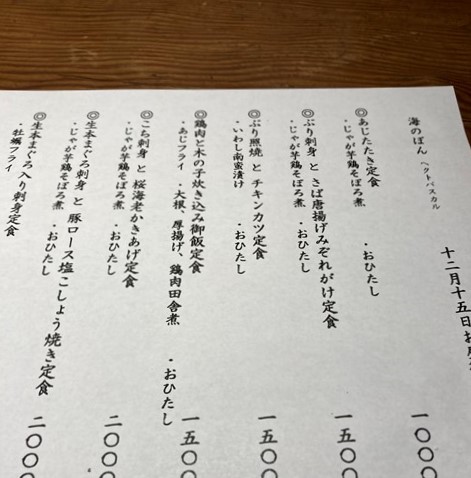 十二月十五日お
海のごはん ヘクトパスカル
◎あじたたき定食 一〇〇〇
・じゃが芋鶏そぼろ煮 ・おひたし
◎ぶり刺身 と さば唐揚げみぞれがけ定食 一五〇〇
・じゃが芋鶏そぼろ煮 ・おひたし
◎ぶり照焼 と チキンカツ定食 一五〇〇
・いわし南蛮漬け ・おひたし
◎鶏肉と木の子炊き込み御飯定食 一五〇〇
・あじフライ ・大根、厚揚げ、鶏肉田舎煮 ・おひたし
◎こち刺身 と 桜海老かきあげ定食 二〇〇〇
・じゃが芋鶏そぼろ煮 ・おひたし
◎生本まぐろ刺身 と 豚ロース塩こしょう焼き定食 二〇〇〇
・じゃが芋鶏そぼろ煮 ・おひたし
◎生本まぐろ入り刺身定食
・牡蠣フライ